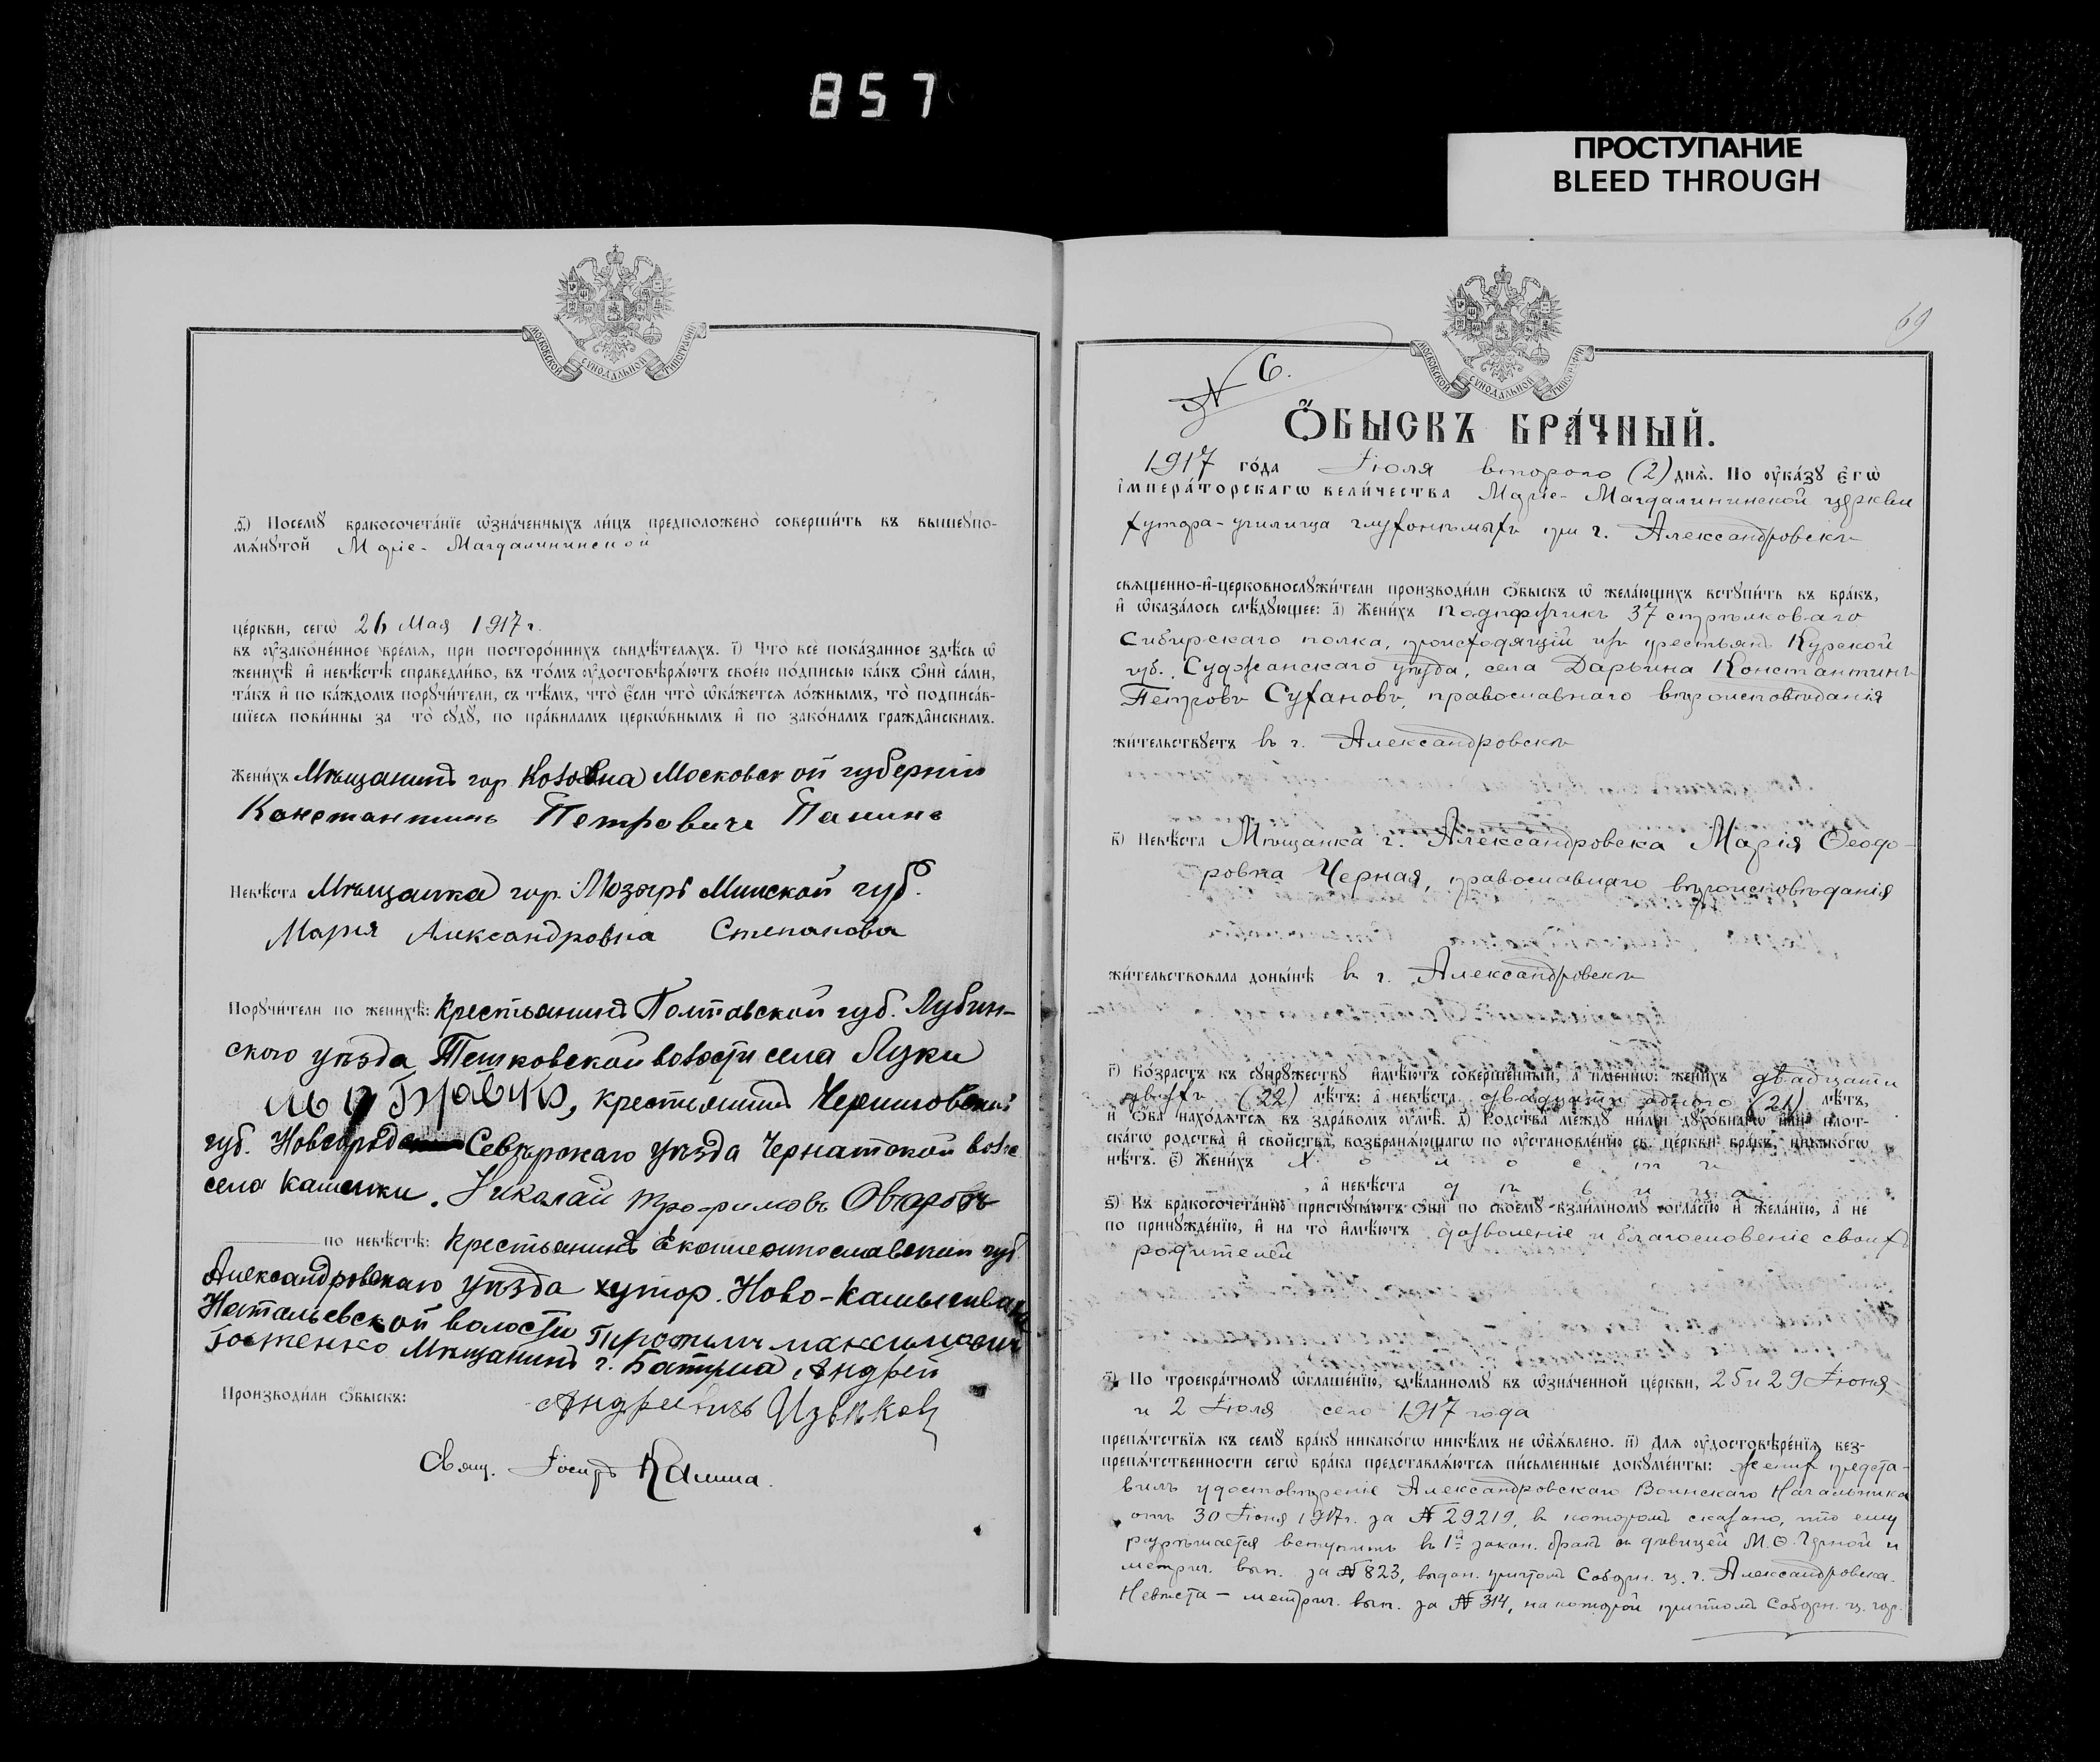 857
ПРОСТУПАНИЕ
BLEED THROUGH
МОСКОВСКОЙ СѴНОДАЛЬНОЙ ТИПОГРАФІИ
ѳ҃) Посемꙋ̀ бракосочета́нїе ѡ҆зна́ченныхъ ли́цъ предположено̀ соверши́ть въ вышеꙋпо-
мѧ́нꙋтой Маріе-Магдалининской
це́ркви, сегѡ̀ 26 Мая 1917 г.
въ ᲂу҆зако́ненное вре́мѧ, при посторо́ннихъ свидѣ́телѧхъ. і҃) Что̀ всѐ пока́занное здѣ́сь ѡ҆
женихѣ̀ и҆ невѣ́стѣ справедли́во, въ то́мъ ᲂу҆достовѣрѧ́ютъ свое́ю по́дписью ка́къ ѻ҆нѝ са́ми,
та́къ и҆ по ка́ждомъ порꙋчи́тели, съ тѣ́мъ, что̀ є҆́сли что̀ ѡ҆ка́жетсѧ ло́жнымъ, то̀ подписа́в-
шїесѧ пови́нны за то̀ сꙋдꙋ̀, по пра́виламъ церко́внымъ и҆ по зако́намъ гражда́нскимъ.
Жени́хъ Мѣщанинъ гор Московской губерніи
Константинъ Петровичъ Панинъ
Невѣ́ста Мѣщанка гор. Мозырь Минской губ.
Мария Александровна Степанова
Порꙋчи́тели по женихѣ̀: Крестьянинъ Полтавской губ. Лубин-
ского уѣзда волости села Луки
крестьянинъ Черниговской
губ. Новгородъ Сѣверскаго уѣзда
села Каменки. Николай Трофимовъ Овчаровъ
по невѣ́стѣ: Крестьянинъ Екатеринославской губ.
Александровскаго уѣзда хутор. Ново-
Натальевской волости
Мѣщанинъ г. Батума Андрей
Производи́ли ѻ҆́быскъ:
Свящ. Іосифъ
69
МОСКОВСКОЙ СѴНОДАЛЬНОЙ ТИПОГРАФІИ
№ 6.
Ѻ҆́БЫСКЪ БРА́ЧНЫЙ.
1917 го́да Іюля второго (2) днѧ̀. По ᲂу҆ка́зꙋ Є҆гѡ̀
І҆мпера́торскагѡ вели́чества Маріе-Магдалининской церкви
хутора-училища глухонѣмыхъ при г. Александровскѣ
свѧще́нно-и҆-церковнослꙋжи́тели производи́ли ѻ҆́быскъ ѡ҆ жела́ющихъ встꙋпи́ть въ бра́къ,
и҆ ѡ҆каза́лось слѣ́дꙋющее: а҃) Жени́хъ 37 стрѣлковаго
Сибирскаго полка, происходящій изъ крестьянъ Курской
губ. Суджанскаго уѣзда, села Дарьина Константинъ
Петровъ Сухановъ, православнаго вѣроисповѣданія
жи́тельствꙋетъ въ г. Александровскѣ
в҃) Невѣ́ста Мѣщанка г. Александровска Марія Ѳеодо-
ровна Черная, православнаго вѣроисповѣданія
жи́тельствовала доны́нѣ въ г. Александровскѣ
г҃) Во́зрастъ къ сꙋпрꙋ́жествꙋ и҆мѣ́ютъ соверше́нный, а҆ и҆́меннѡ: жени́хъ двадцати
двухъ (22) лѣ́тъ: а҆ невѣ́ста двадцати одного (21) лѣ́тъ,
и҆ ѻ҆́ба нахо́дѧтсѧ въ здра́вомъ ᲂу҆мѣ̀. д҃) Родства̀ междꙋ̀ ни́ми дꙋхо́внагѡ и҆лѝ пло́т-
скагѡ родства̀ и҆ сво́йства, возбранѧ́ющагѡ по ᲂу҆становле́нїю св. це́ркви бра́къ, никако́гѡ
нѣ́тъ. є҃) Жени́хъ холостъ
, а҆ невѣ́ста дѣвица
ѕ҃) Къ бракосочета́нїю пристꙋпа́ютъ ѻ҆нѝ по своемꙋ̀ взаи́мномꙋ согла́сїю и҆ жела́нїю, а҆ не
по принꙋжде́нїю, и҆ на то̀ и҆мѣ́ютъ дозволеніе и благословеніе своихъ
родителей
з҃) По троекра́тномꙋ ѡ҆глаше́нїю, сдѣ́ланномꙋ въ ѡ҆зна́ченной це́ркви, 25 и 29 Іюня
и 2 Іюля сего 1917 года
препѧ́тствїѧ къ семꙋ̀ бра́кꙋ никако́гѡ никѣ́мъ не ѡ҆б̾ѧ́влено. и҃) Для ᲂу҆достовѣре́нїѧ без-
препѧ́тственности сегѡ̀ бра́ка представлѧ́ютсѧ пи́сьменные докꙋме́нты: Женихъ предста-
вилъ удостовѣреніе Александровскаго Воинскаго Начальника
отъ 30 Іюня 1917 г. за № 29219, въ которомъ сказано, что ему
разрѣшается вступить въ 1й закон. бракъ съ дѣвицей М. Ѳ. Черной и
метрич. вып. за № 823, выдан. причтомъ Соборн. ц. г. Александровска.
Невѣста – метрич. вып. за № 314, на которой причтомъ Соборн. ц. гор.